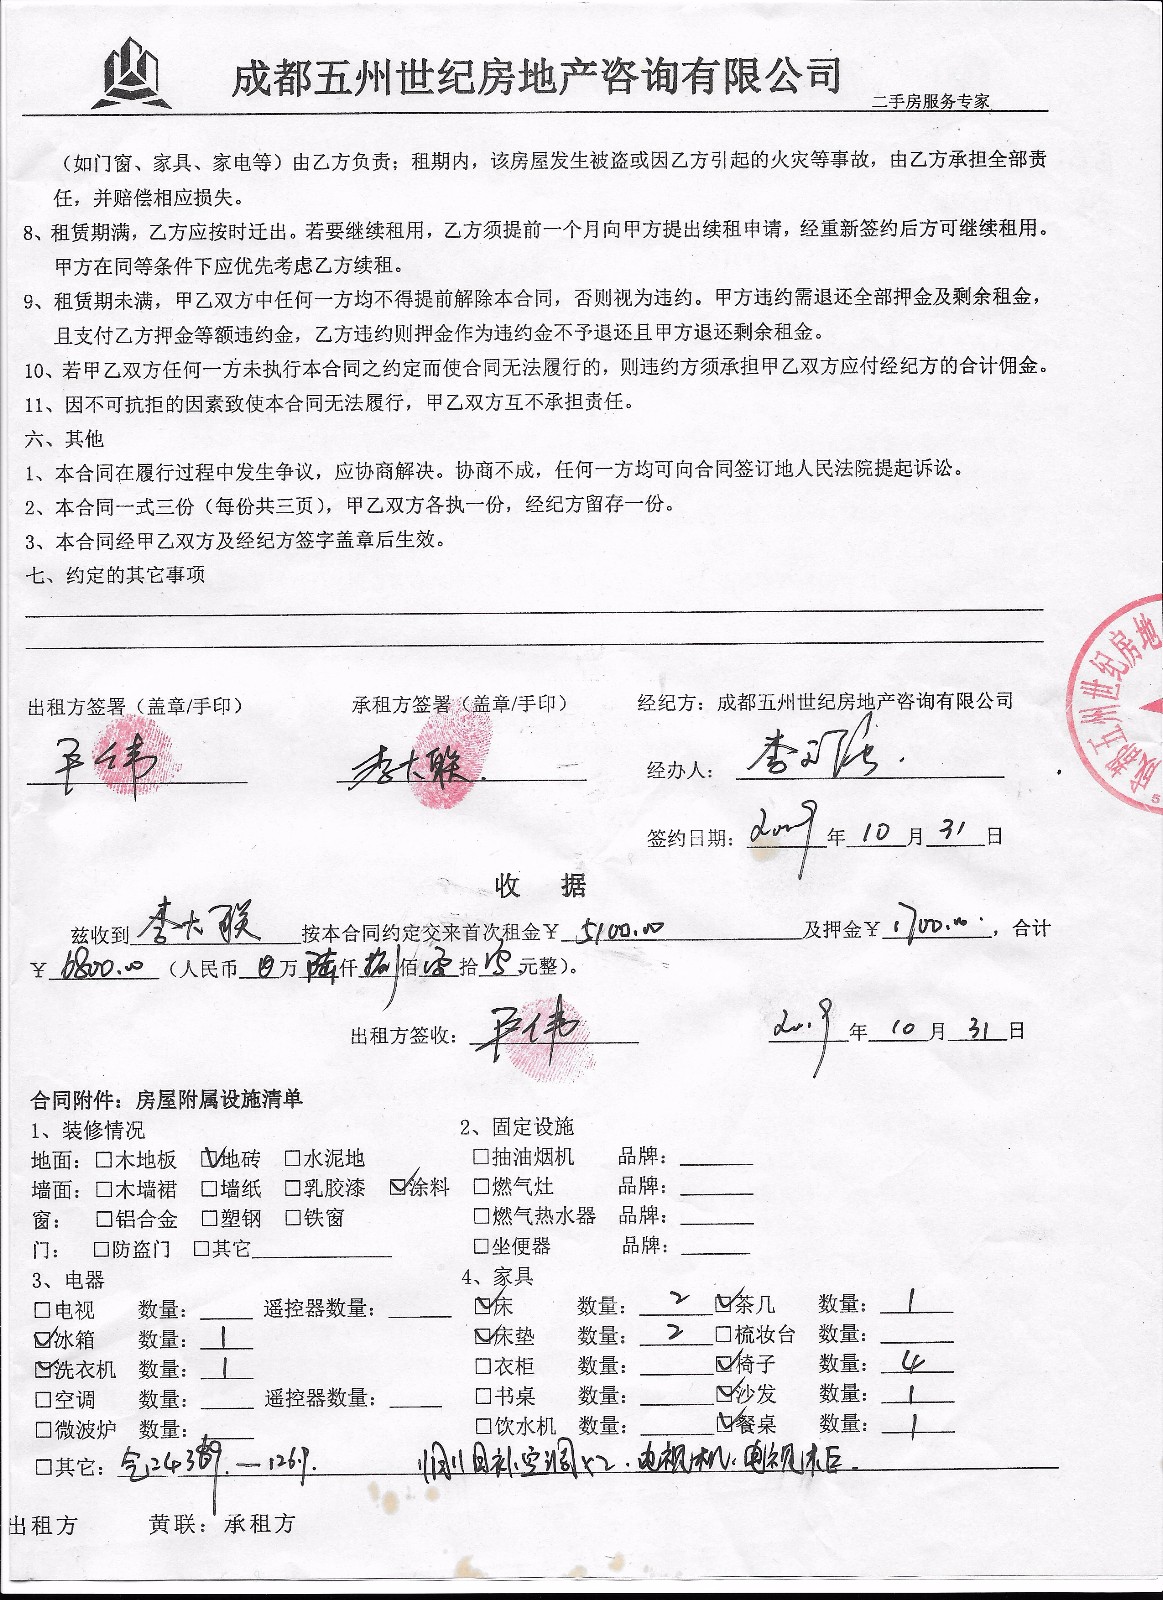 成都五州世纪房地产咨询有限公司
二手房服务专家
（如门窗、家具、家电等）由乙方负责；租期内，该房屋发生被盗或因乙方引起的火灾等事故，由乙方承担全部责
任，并赔偿相应损失。
8、租赁期满，乙方应按时迁出。若要继续租用，乙方须提前一个月向甲方提出续租申请，经重新签约后方可继续租用。
甲方在同等条件下应优先考虑乙方续租。
9、租赁期未满，甲乙双方中任何一方均不得提前解除本合同，否则视为违约。甲方违约需退还全部押金及剩余租金，
且支付乙方押金等额违约金，乙方违约则押金作为违约金不予退还且甲方退还剩余租金。
10、若甲乙双方任何一方未执行本合同之约定而使合同无法履行的，则违约方须承担甲乙双方应付经纪方的合计佣金。
11、因不可抗拒的因素致使本合同无法履行，甲乙双方互不承担责任。
六、其他
1、本合同在履行过程中发生争议，应协商解决。协商不成，任何一方均可向合同签订地人民法院提起诉讼。
2、本合同一式三份（每份共三页），甲乙双方各执一份，经纪方留存一份。
3、本合同经甲乙双方及经纪方签字盖章后生效。
七、约定的其它事项
成都五州世纪房地
出租方签署（盖章/手印） 承租方签署（盖章/手印） 经纪方：成都五州世纪房地产咨询有限公司
李大联 经办人：李
签约日期：2009年10月31日
收 据
兹收到 李大联 按本合同约定交来首次租金￥ 5100.00 及押金￥ 1700.00，合计
￥ 6800.00 （人民币 万 陆 仟 捌 佰 零 拾 零 元整）。
出租方签收： 2009年10月31日
合同附件：房屋附属设施清单
1、装修情况 2、固定设施
地面：□木地板 ☑地砖 □水泥地 □抽油烟机 品牌：
墙面：□木墙裙 □墙纸 □乳胶漆 ☑涂料 □燃气灶 品牌：
窗： □铝合金 □塑钢 □铁窗 □燃气热水器 品牌：
门： □防盗门 □其它 □坐便器 品牌：
3、电器 4、家具
□电视 数量： 遥控器数量： ☑床 数量：2 ☑茶几 数量：1
☑冰箱 数量：1 ☑床垫 数量：2 □梳妆台 数量：
☑洗衣机 数量：1 □衣柜 数量： ☑椅子 数量：4
□空调 数量： 遥控器数量： □书桌 数量： ☑沙发 数量：1
□微波炉 数量： □饮水机 数量： ☑餐桌 数量：1
□其它：气 空调×2、电视机、电视柜
出租方 黄联：承租方